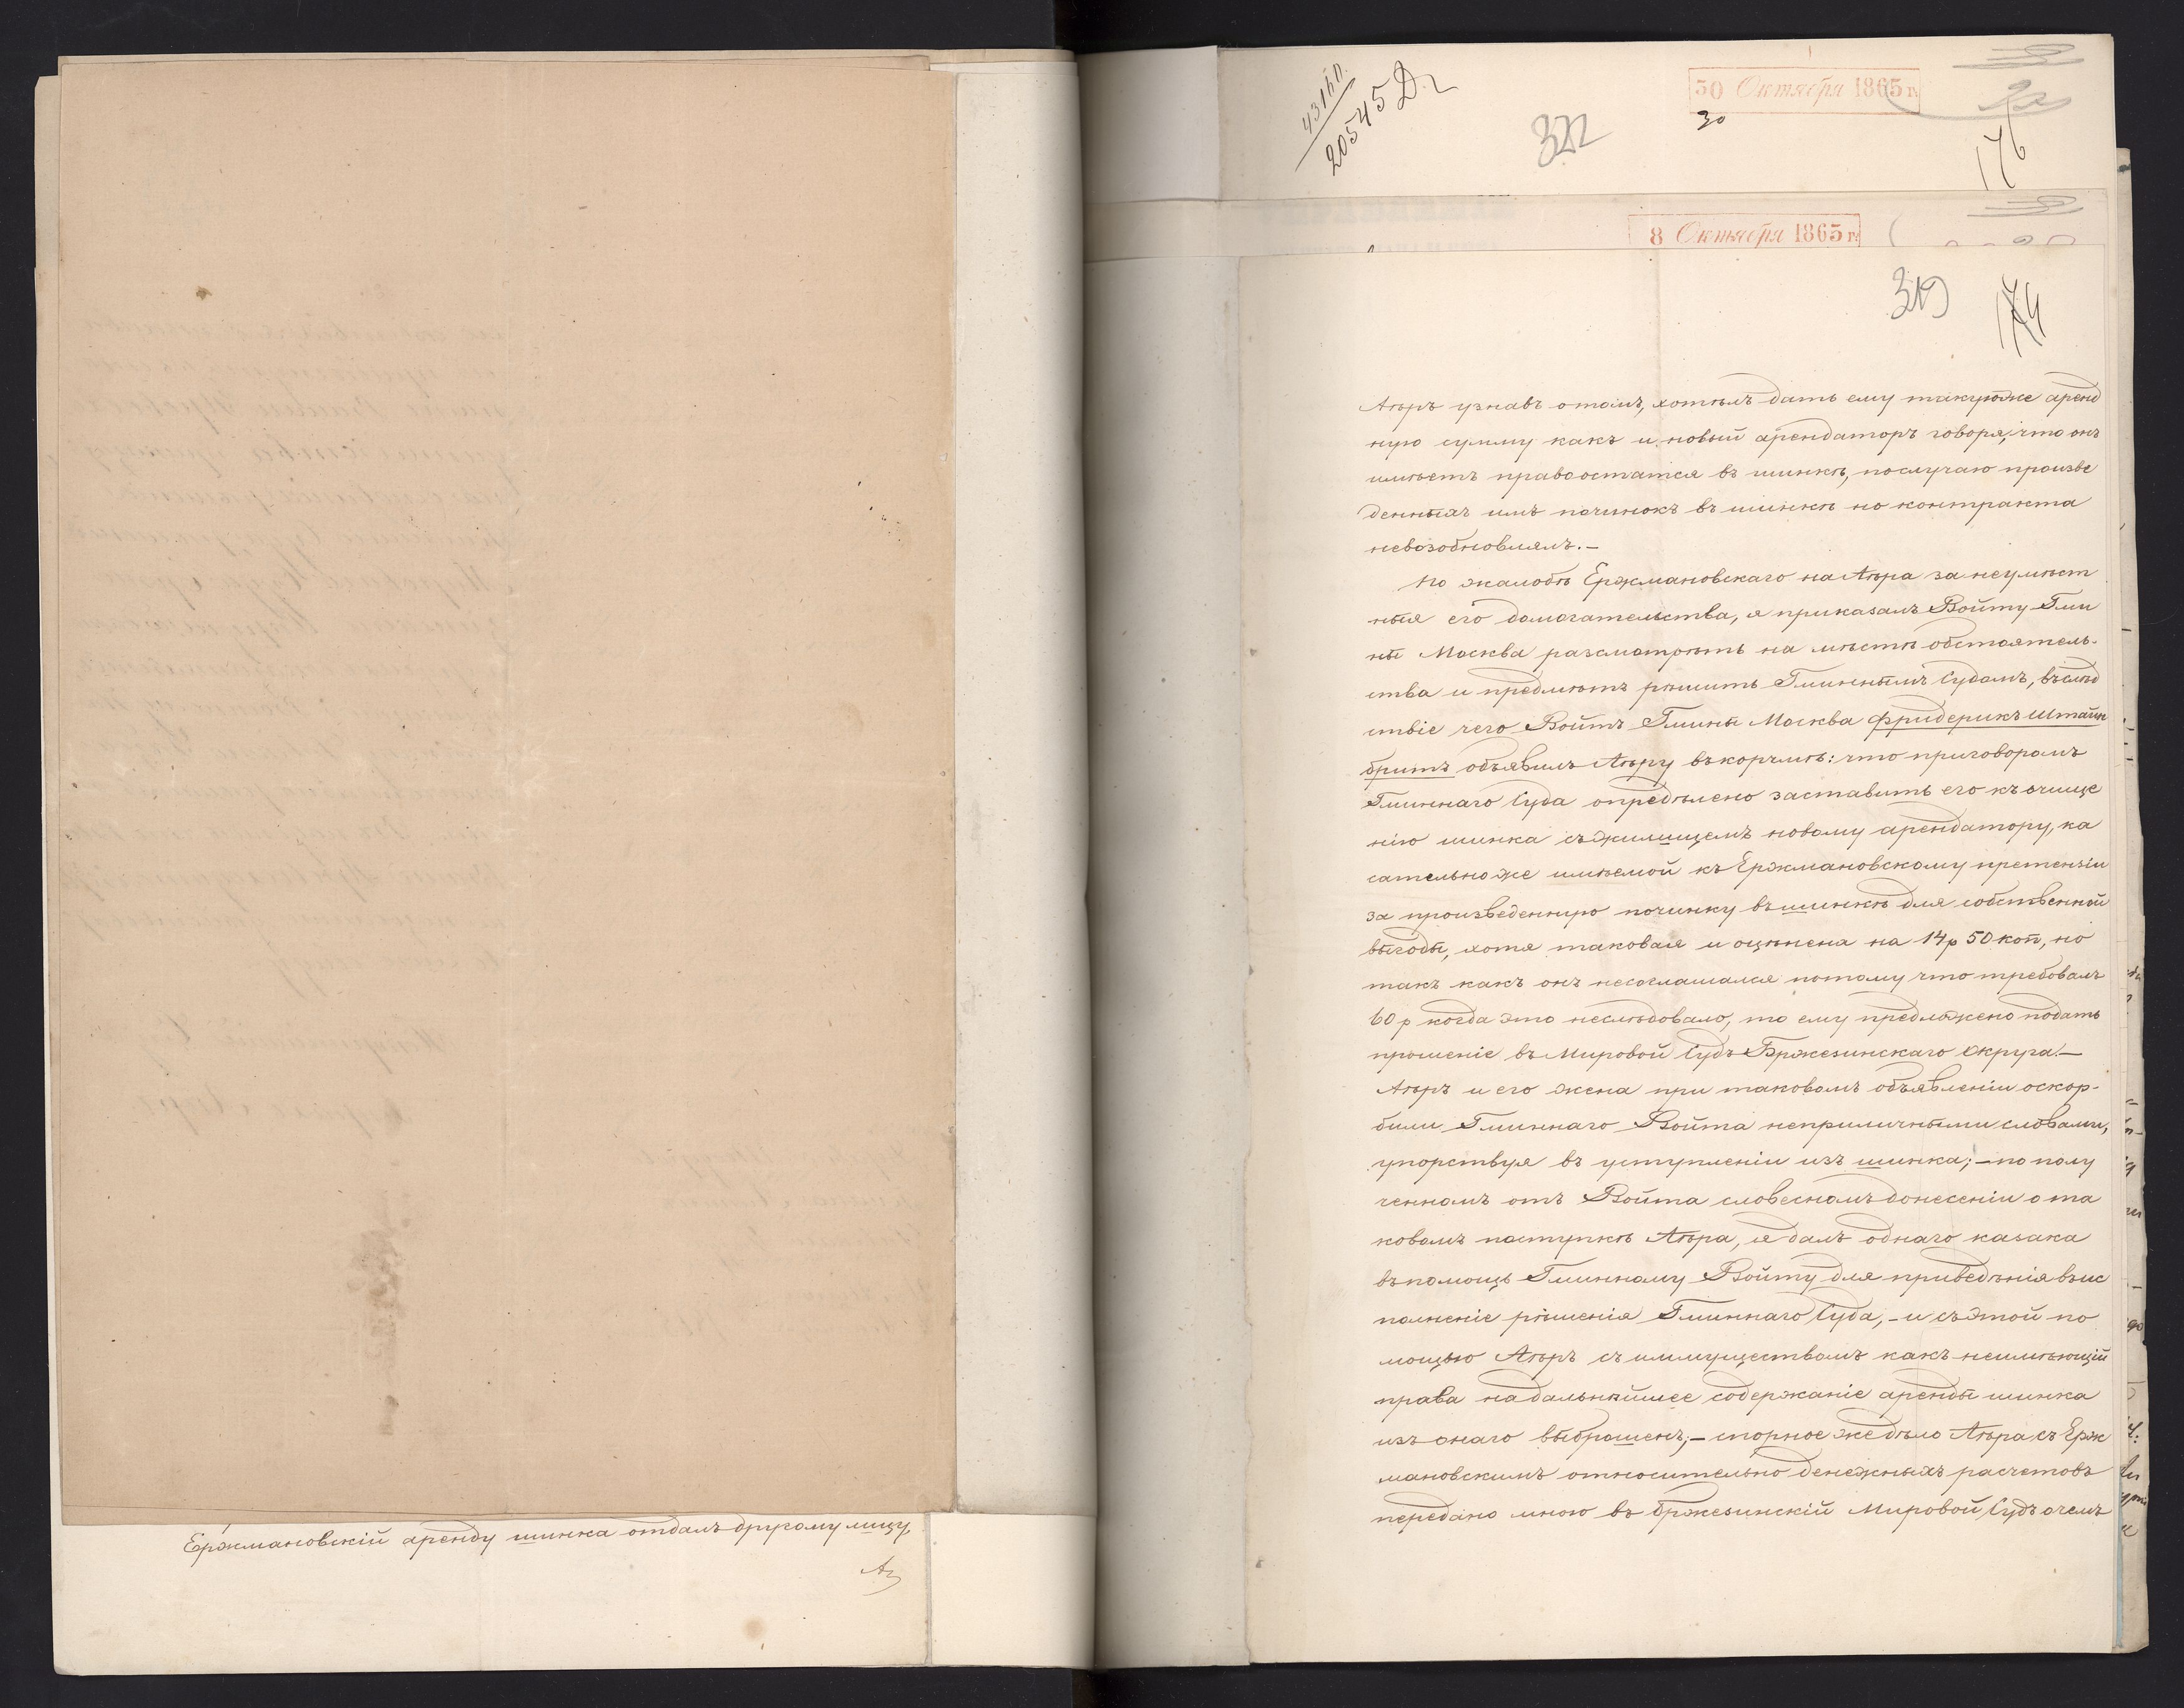 Ержмановскій аренду шинка отдалъ другому лицу,
431 кп.
20545 Д.
322
30 Октября 1865 г.
30
176
8 Октября 1865 г.
319
174
Аѣръ узнавъ о томъ, хотѣлъ дать ему такуюже аренд
ную сумму какъ и новый арендаторъ говоря, что онъ
имѣетъ право остатся въ шинкѣ, послучаю произве
денныхъ имъ починокъ въ шинкѣ но контракта
невозобновлялъ.—
По жалобѣ Ержмановскаго на Аѣра за неумѣст
ныя его домогательства, я приказалъ Войту Гми
ны Москва разсмотрѣть на мѣстѣ обстоятель-
ства и предмѣтъ рѣшить Гминнымъ Судомъ, въслѣд
ствіе чего Войтъ Гмины Москва Фридерикъ Штайн
бритъ объявилъ Аѣру въ корчмѣ: что приговоромъ
Гминнаго Суда опредѣлено заставить его къ очище
нію шинка съ жилищемъ новому арендатору, ка
сательно же имѣемой къ Ержмановскому претензіи
за произведенную починку въ шинкѣ для собственной
выгоды, хотя таковая и оцѣнена на 14 р 50 коп, но
такъ какъ онъ несоглашался потому что требовалъ
60 р когда это неслѣдовало, то ему предложено подать
прошеніе въ Мировой Судъ Бржезинскаго Округа.—
Аѣръ и его жена при таковомъ объявленіи оскор-
били Гминнаго Войта неприличными словами,
упорствуя въ уступленіи изъ шинка; — по полу
ченномъ отъ Войта словесномъ донесеніи о та
ковомъ поступкѣ Аѣра, я далъ однаго казака
въ помощь Гминному Войту для приведѣнія въ ис
полненіе рѣшенія Гминнаго Суда, - и съ этой по
мощью Аѣръ съ иммуществомъ какъ неимѣющій
права на дальнѣйшее содержаніе аренды шинка
изъ онаго выброшенъ; — спорное же дѣло Аѣра съ Ерж
мановскимъ относительно денежныхъ расчетовъ
передано мною въ Бржезинскій Мировой Судъ о чемъ